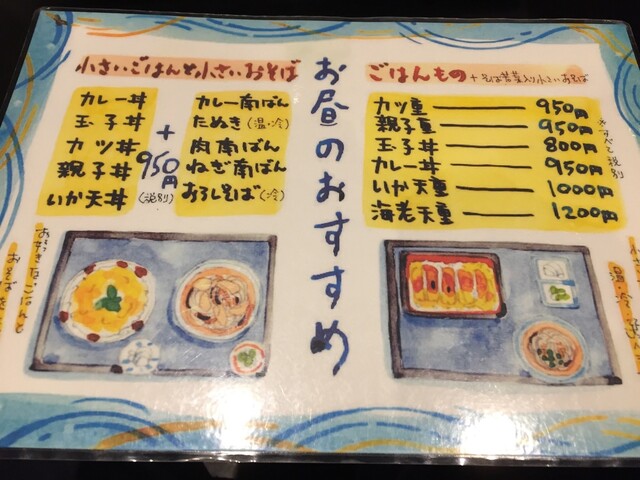 お昼のおすすめ
小さいごはんと小さいおそば
カレー丼
玉子丼
カツ丼
親子丼
いか天丼
+
950円
(税別)
カレー南ばん
たぬき(温・冷)
肉南ばん
ねぎ南ばん
おろしそば(冷)
お好きなごはんと
ごはんもの
カツ重 950円
親子重 950円
玉子丼 800円
カレー丼 950円
いか天重 1000円
海老天重 1200円
すべて税別